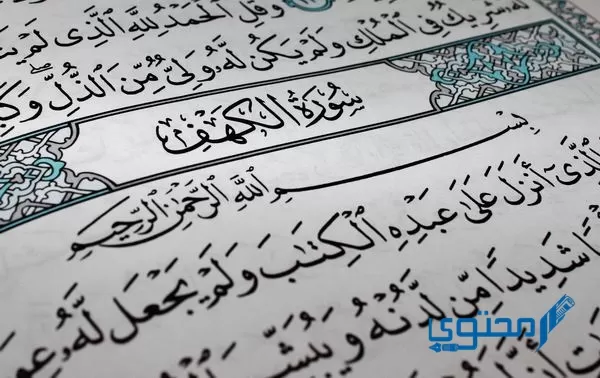 وَقُلِ ٱلْحَمْدُ لِلَّهِ ٱلَّذِى لَمْ
لَّهُۥ شَرِيكٌ فِى ٱلْمُلْكِ وَلَمْ يَكُن لَّهُۥ وَلِىٌّ مِّنَ ٱلذُّلِّ
سُورَةُ الكَهْفِ
بِسْمِ ٱللَّهِ ٱلرَّحْمَٰنِ ٱلرَّحِيمِ
ٱلَّذِىٓ أَنزَلَ عَلَىٰ عَبْدِهِ ٱلْكِتَٰبَ وَلَمْ يَجْعَل لَّهُۥ
شَدِيدًا مِّن لَّدُنْهُ وَيُبَشِّرَ
محتوى